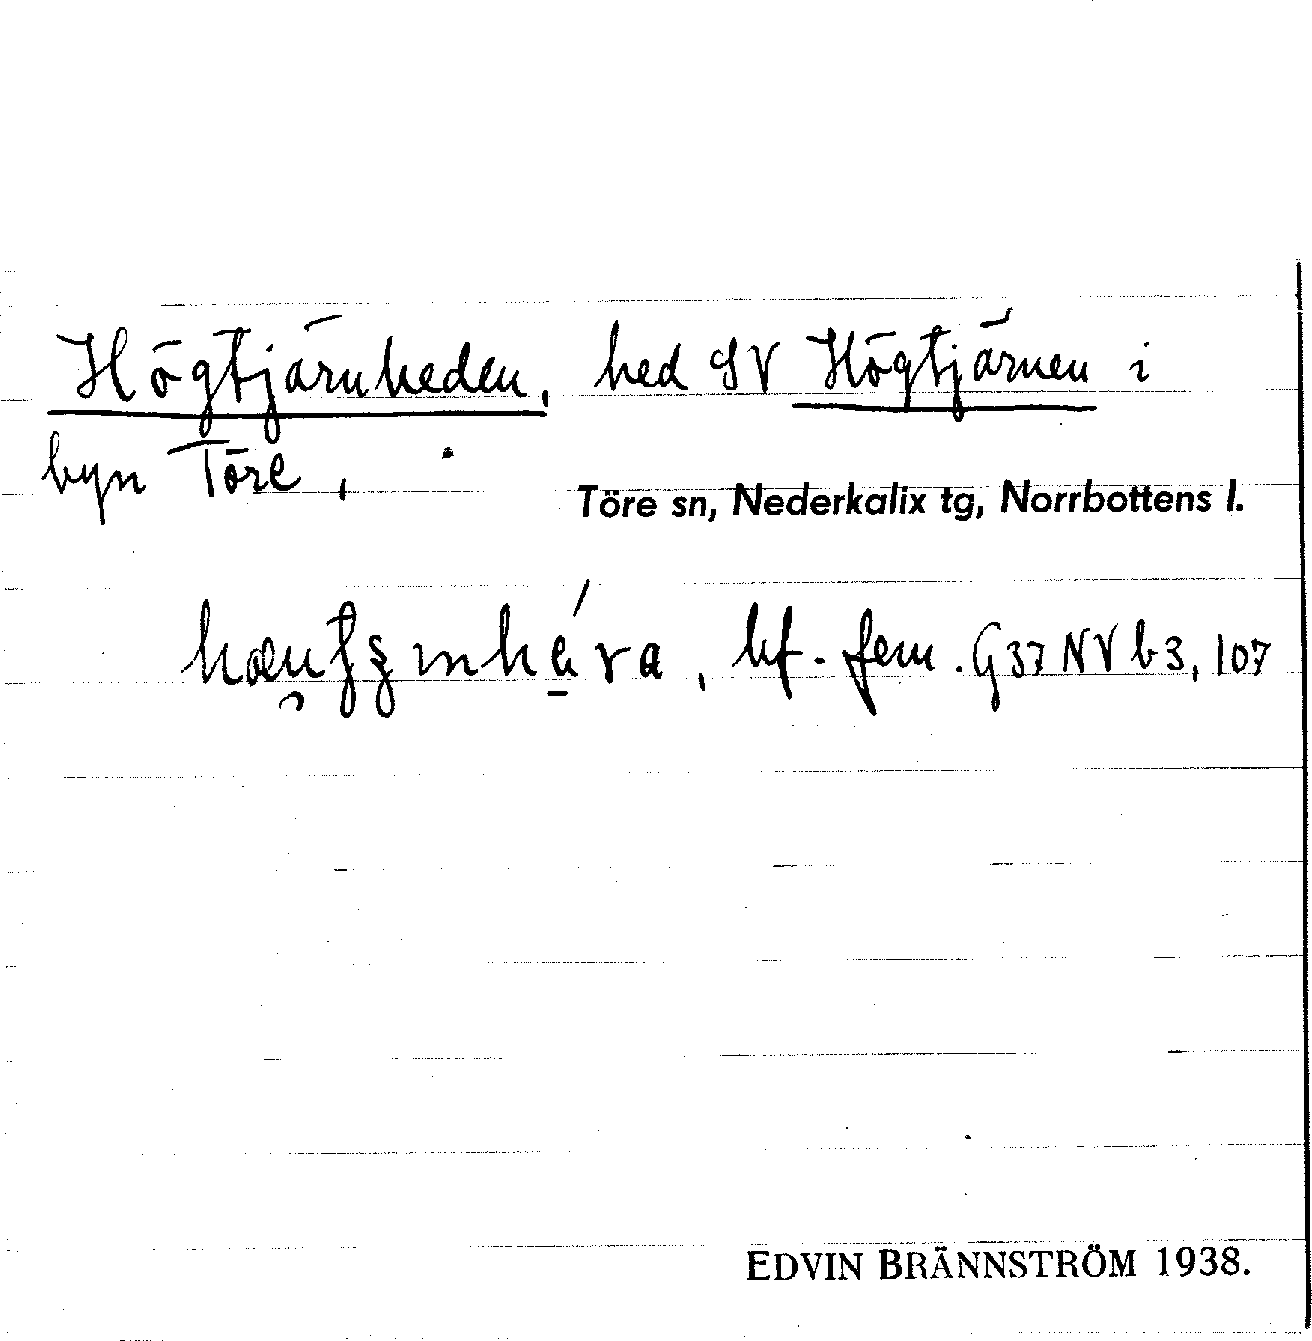 Högtjärnheden, hed SV Högtjärnen i
byn Töre,
Töre sn, Nederkalix tg, Norrbottens l.
, bf. fem. G37 NV b3, 107
EDVIN BRÄNNSTRÖM 1938.